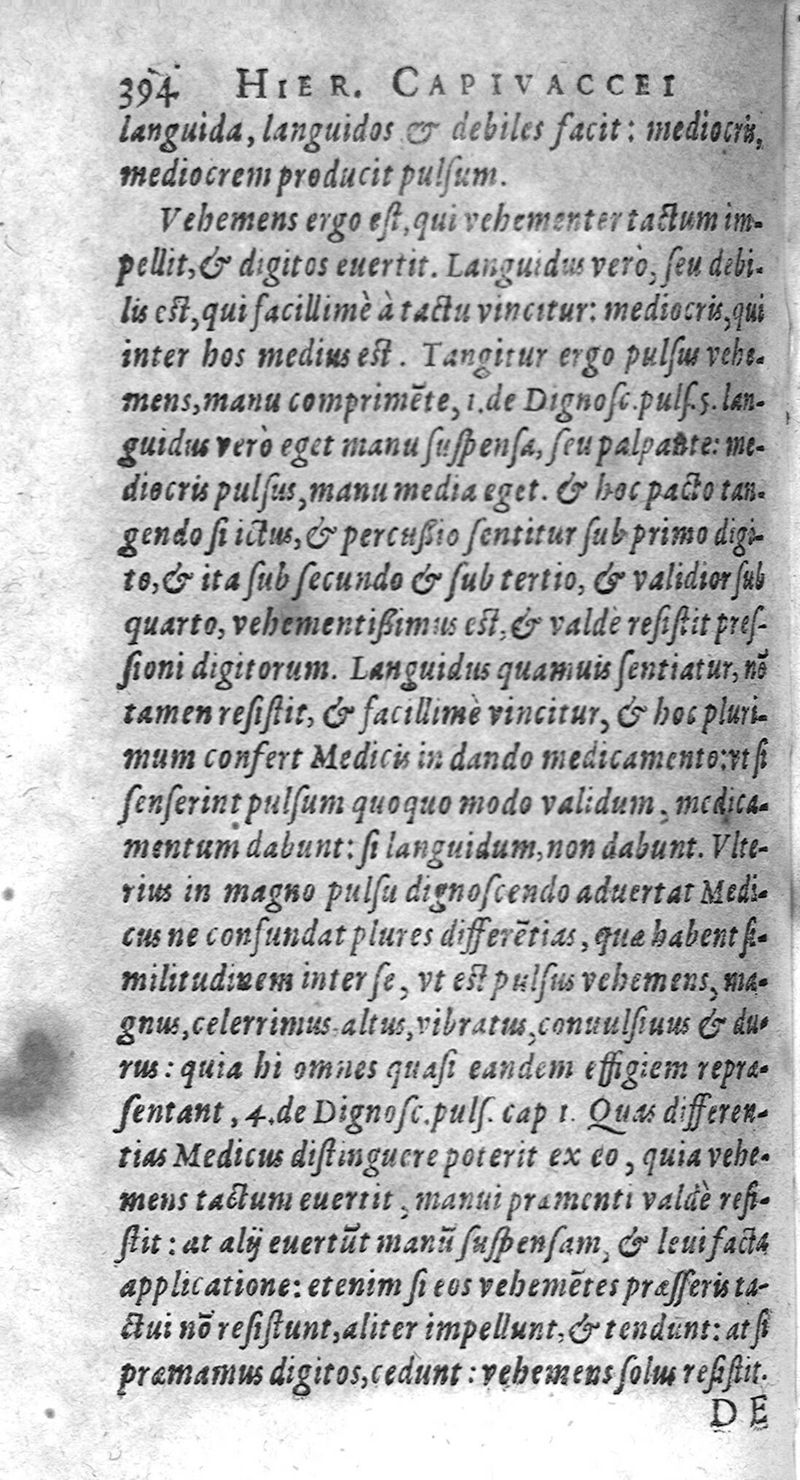 394 HIER. CAPIVACCEI
languida, languidos & debiles facit: mediocris,
mediocrem producit pulſum.
Vehemens ergo eſt, qui vehementer tactum im-
pellit, & digitos euertit. Languidus verò, ſeu debi-
lis eſt, qui facillimè à tactu vincitur: mediocris, qui
inter hos medius eſt. Tangitur ergo pulſus vehe-
mens, manu comprimẽte, 1. de Dignoſc. pulſ. 5. lan-
guidus verò eget manu ſuſpenſa, ſeu palpante: me-
diocris pulſus, manu media eget. & hoc pacto tan-
gendo ſi ictus, & percuſſio ſentitur ſub primo digi-
to, & ita ſub ſecundo & ſub tertio, & validior ſub
quarto, vehementiſſimus eſt, & valdè reſiſtit preſ-
ſioni digitorum. Languidus quamuis ſentiatur, nõ
tamen reſiſtit, & facillimè vincitur, & hoc pluri-
mum confert Medicis in dando medicamento: vt ſi
ſenſerint pulſum quoquo modo validum, medica-
mentum dabunt: ſi languidum, non dabunt. Vlte-
rius in magno pulſu dignoſcendo aduertat Medi-
cus ne confundat plures differẽtias, quæ habent ſi-
militudinem inter ſe, vt eſt pulſus vehemens, ma-
gnus, celerrimus, altus, vibratus, conuulſiuus & du-
rus: quia hi omnes quaſi eandem effigiem repræ-
ſentant, 4. de Dignoſc. pulſ. cap 1. Quas differen-
tias Medicus diſtinguere poterit ex eo, quia vehe-
mens tactum euertit, manui præmenti valdè reſi-
ſtit: at alij euertũt manũ ſuſpenſam, & leui facta
applicatione: etenim ſi eos vehemẽtes præſſeris ta-
ctui nõ reſiſtunt, aliter impellunt, & tendunt: at ſi
præmamus digitos, cedunt: vehemens ſolus reſiſtit.
DE